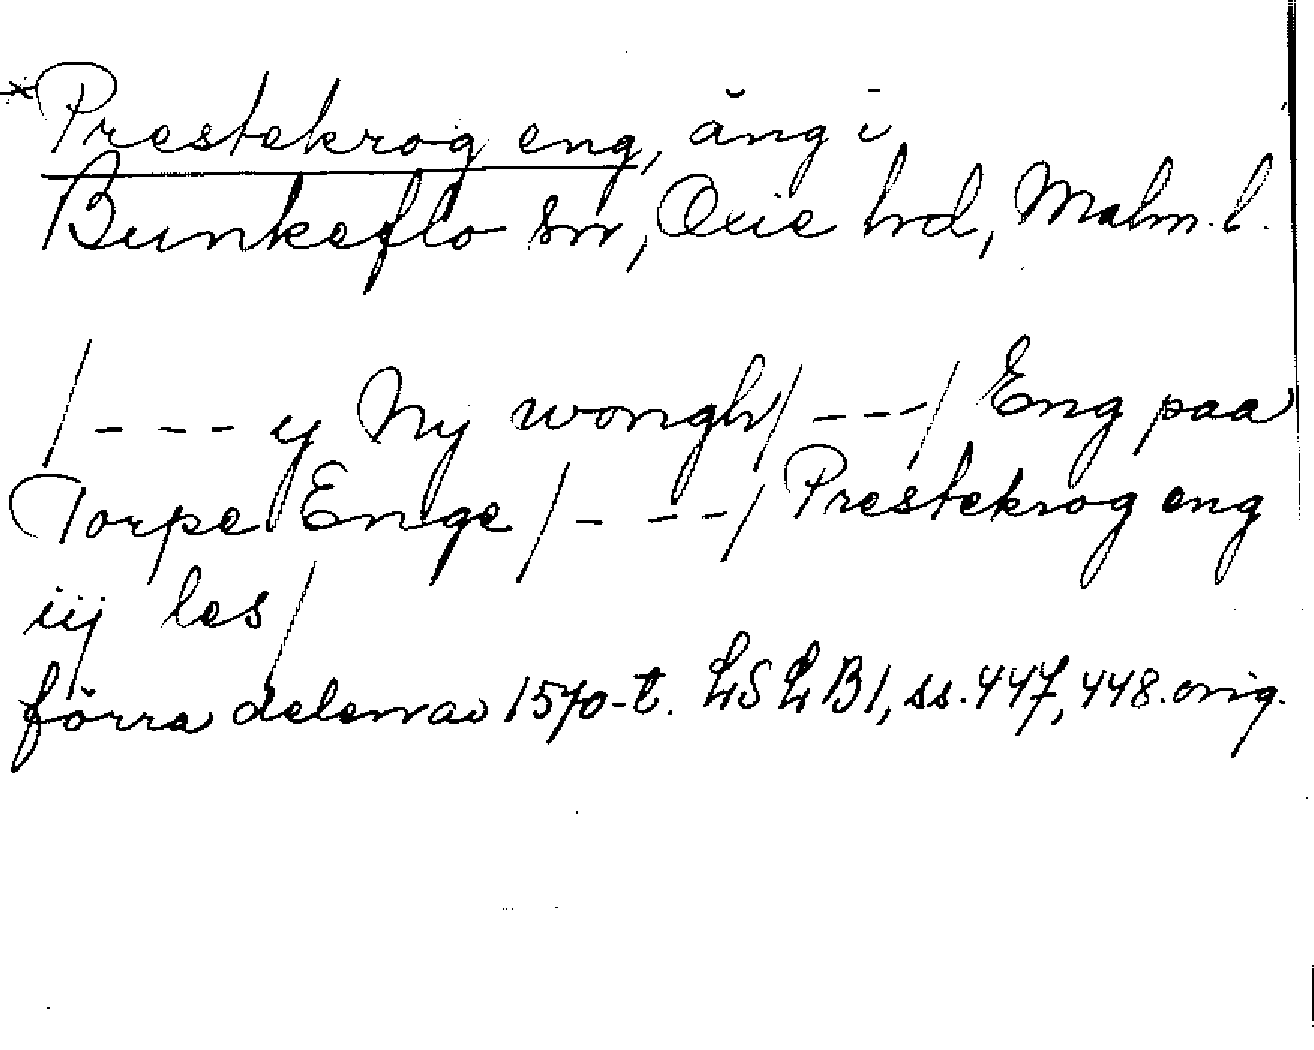 *Prestekrog eng, äng i
Bunkeflo sn, Oxie hd, Malm. l.
/---y Ny wongh/---/ Eng paa
Torpe Enge /---/ Prestekrog eng
iij les/
förra delen av 1570-t. LSLB1, ss. 447, 448. orig.